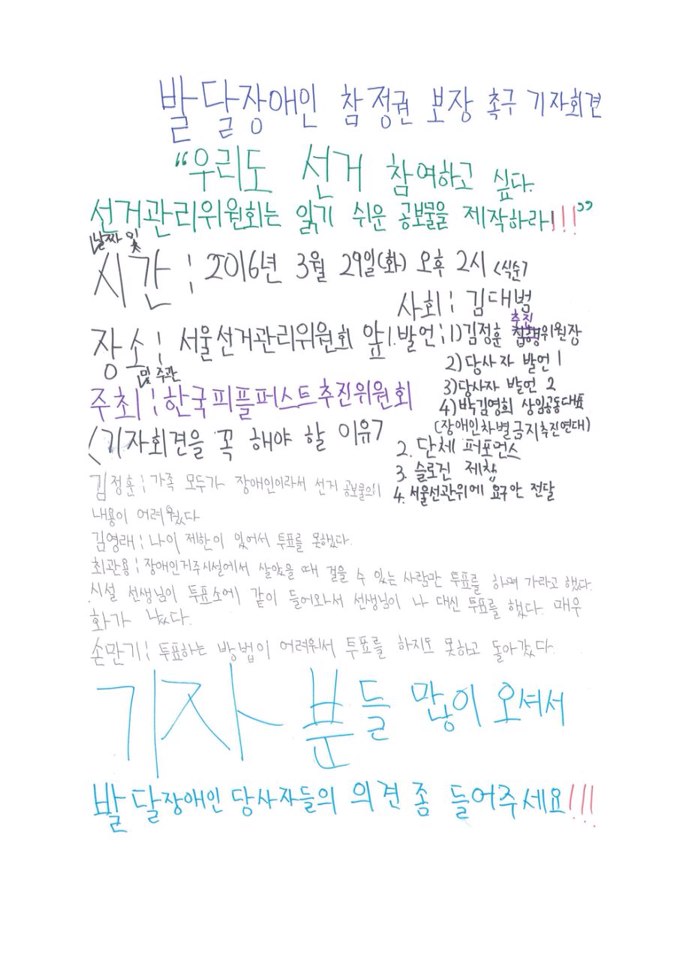 발달장애인 참정권 보장 촉구 기자회견
“우리도 선거 참여하고 싶다.
선거관리위원회는 읽기 쉬운 공보물을 제작하라!!!”
날짜 및
시간: 2016년 3월 29일(화) 오후 2시
장소: 서울선거관리위원회 앞
및 주관
주최: 한국피플퍼스트추진위원회
<식순>
사회: 김대범
추진
1. 발언: 1) 김정훈 집행위원장
2) 당사자 발언 1
3) 당사자 발언 2
4) 박김영희 상임공동대표
(장애인차별금지추진연대)
2. 단체 퍼포먼스
3. 슬로건 제창
4. 서울선관위에 요구안 전달
<기자회견을 꼭 해야 할 이유>
김정훈: 가족 모두가 장애인이라서 선거 공보물의
내용이 어려웠다
김영래: 나이 제한이 있어서 투표를 못했다.
최관용: 장애인거주시설에서 살았을 때 걸을 수 있는 사람만 투표를 하며 가라고 했다.
시설 선생님이 투표소에 같이 들어와서 선생님이 나 대신 투표를 했다. 매우
화가 났다.
손만기: 투표하는 방법이 어려워서 투표를 하지도 못하고 돌아갔다.
기자분들 많이 오셔서
발달장애인 당사자들의 의견 좀 들어주세요!!!